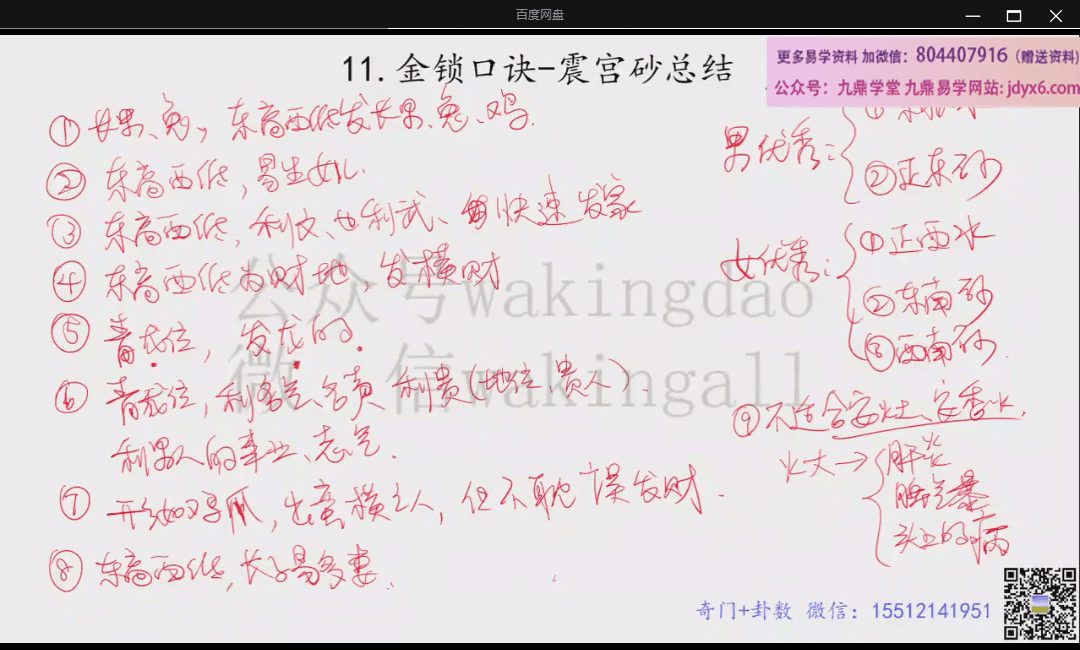 百度网盘
11.金锁口诀-震宫砂总结
更多易学资料 加微信：804407916（赠送资料）
公众号：九鼎学堂 九鼎易学网站：jdyx6.com
① 长男、兔，东高西低发长男、兔、鸡.
② 东高西低，易生女儿.
③ 东高西低，利文、也利武、快速发家
④ 东高西低为财地，发横财
⑤ 青龙位，发龙的.
⑥ 青龙位，利名气、名声 利贵（地位、贵人）.
利男人的事业、志气.
⑦ 形如鸡爪，出蛮横之人，但不耽误发财.
⑧ 东高西低，长子易多妻.
男优秀：
②正东砂
女优秀：①正西水
②东南砂
③西南砂.
⑨不适合安灶、安香火.
火大→肝炎
脾气暴
头上的病
公众号wakingdao
微信wakingall
奇门+卦数 微信：15512141951